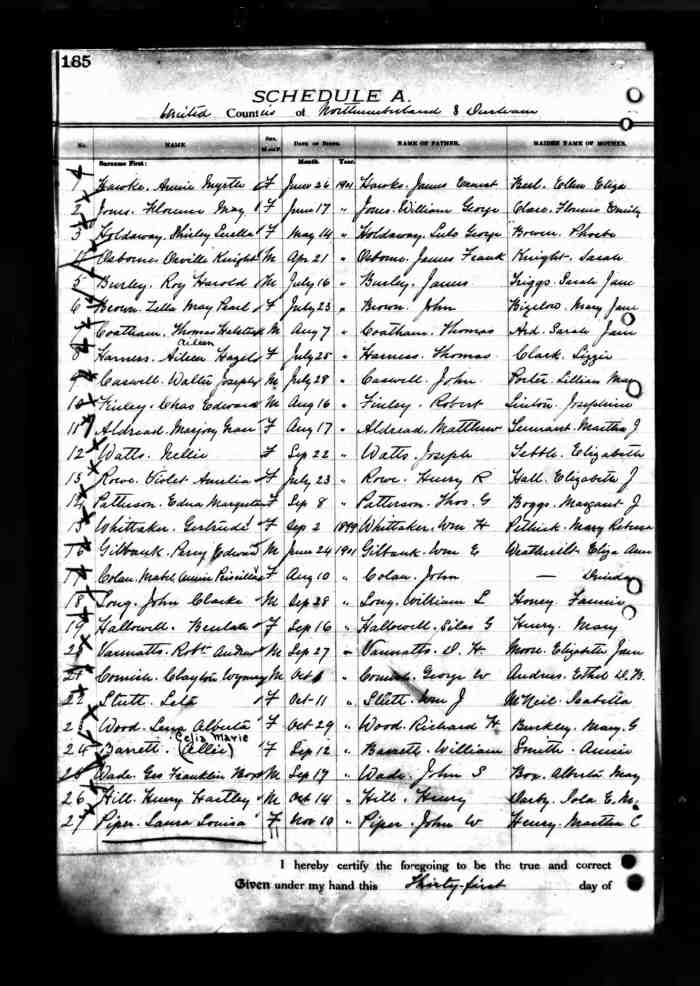 185
SCHEDULE A.
United Counties of Northumberland & Durham
No. NAME Sex. M or F. DATE OF BIRTH. NAME OF FATHER. MAIDEN NAME OF MOTHER.
Surname First: Month. Year.
1 Hawke. Annie Myrtle F June 26 1901 Hawke. James Ernest Beel. Ellen Eliza
2 Jones. Florence May F June 17 " Jones. William George Clare. Florence Emily
3 Holdaway. Shirley Luella F May 14 " Holdaway. Luke George Bowen. Phoebe
4 Osborne Orville Knight M Apr 21 " Osborne. James Frank Knight. Sarah
5 Burley. Roy Harold M July 16 " Burley. James Triggs. Sarah Jane
6 Brown. Zella May Pearl F July 23 " Brown. John Bigelow. Mary Jane
7 Coatham. Thomas M Aug 7 " Coatham. Thomas Ard. Sarah Jane
Aileen
8 Harness. Aileen Hazel F July 25 " Harness. Thomas Clark. Lizzie
9 Caswell. Walter Joseph M July 28 " Caswell. John Porter. Lillian May
10 Finley. Chas Edward M Aug 16 " Finley. Robert Linton. Josephine
11 Aldread. Marjory F Aug 17 " Aldread. Matthew Tennant. Martha J
12 Watts. Nellie F Sep 22 " Watts. Joseph Tebble. Elizabeth
13 Rowe. Violet Amelia F July 23 " Rowe. Henry R Hall. Elizabeth J
14 Patterson. Edna F Sep 8 " Patterson. Thos. G Boggs. Margaret J
15 Whittaker. Gertrude F Sep 2 1899 Whittaker. Wm H Pethick. Mary Rebecca
16 Gilbank. Percy Edward M June 24 1901 Gilbank. Wm E Eliza Ann
17 Colan. Mabel Annie Priscilla F Aug 10 " Colan. John —
18 Long. John Clarke M Sep 28 " Long. William L Honey. Fannie
19 Hallowell. Beulah F Sep 16 " Hallowell. Silas G Henry. Mary
20 Vanmatts. Robt Andrew M Sep 27 " Vanmatts. D. H Moore. Elizabeth Jane
21 Cornish. Clayton M Oct " Cornish. George W Andrus. Ethel D. B.
22 Stutt. Leta F Oct 11 " Stutt. Wm J McNeil. Isabella
23 Wood. Lena Alberta F Oct 29 " Wood. Richard H Burkley. Mary. G
Celia Marie
24 Barrett. (Allie) F Sep 12 " Barrett. William Smith. Annie
25 Wade. Geo Franklin M Sep 17 " Wade. John S Box. Alberta May
26 Hill. Henry Hartley M Oct 14 " Hill. Henry Darby. Iola E. M.
27 Piper. Laura Louisa F Nov 10 " Piper. John W Henry. Martha C
I hereby certify the foregoing to be the true and correct
Given under my hand this Thirty-first day of